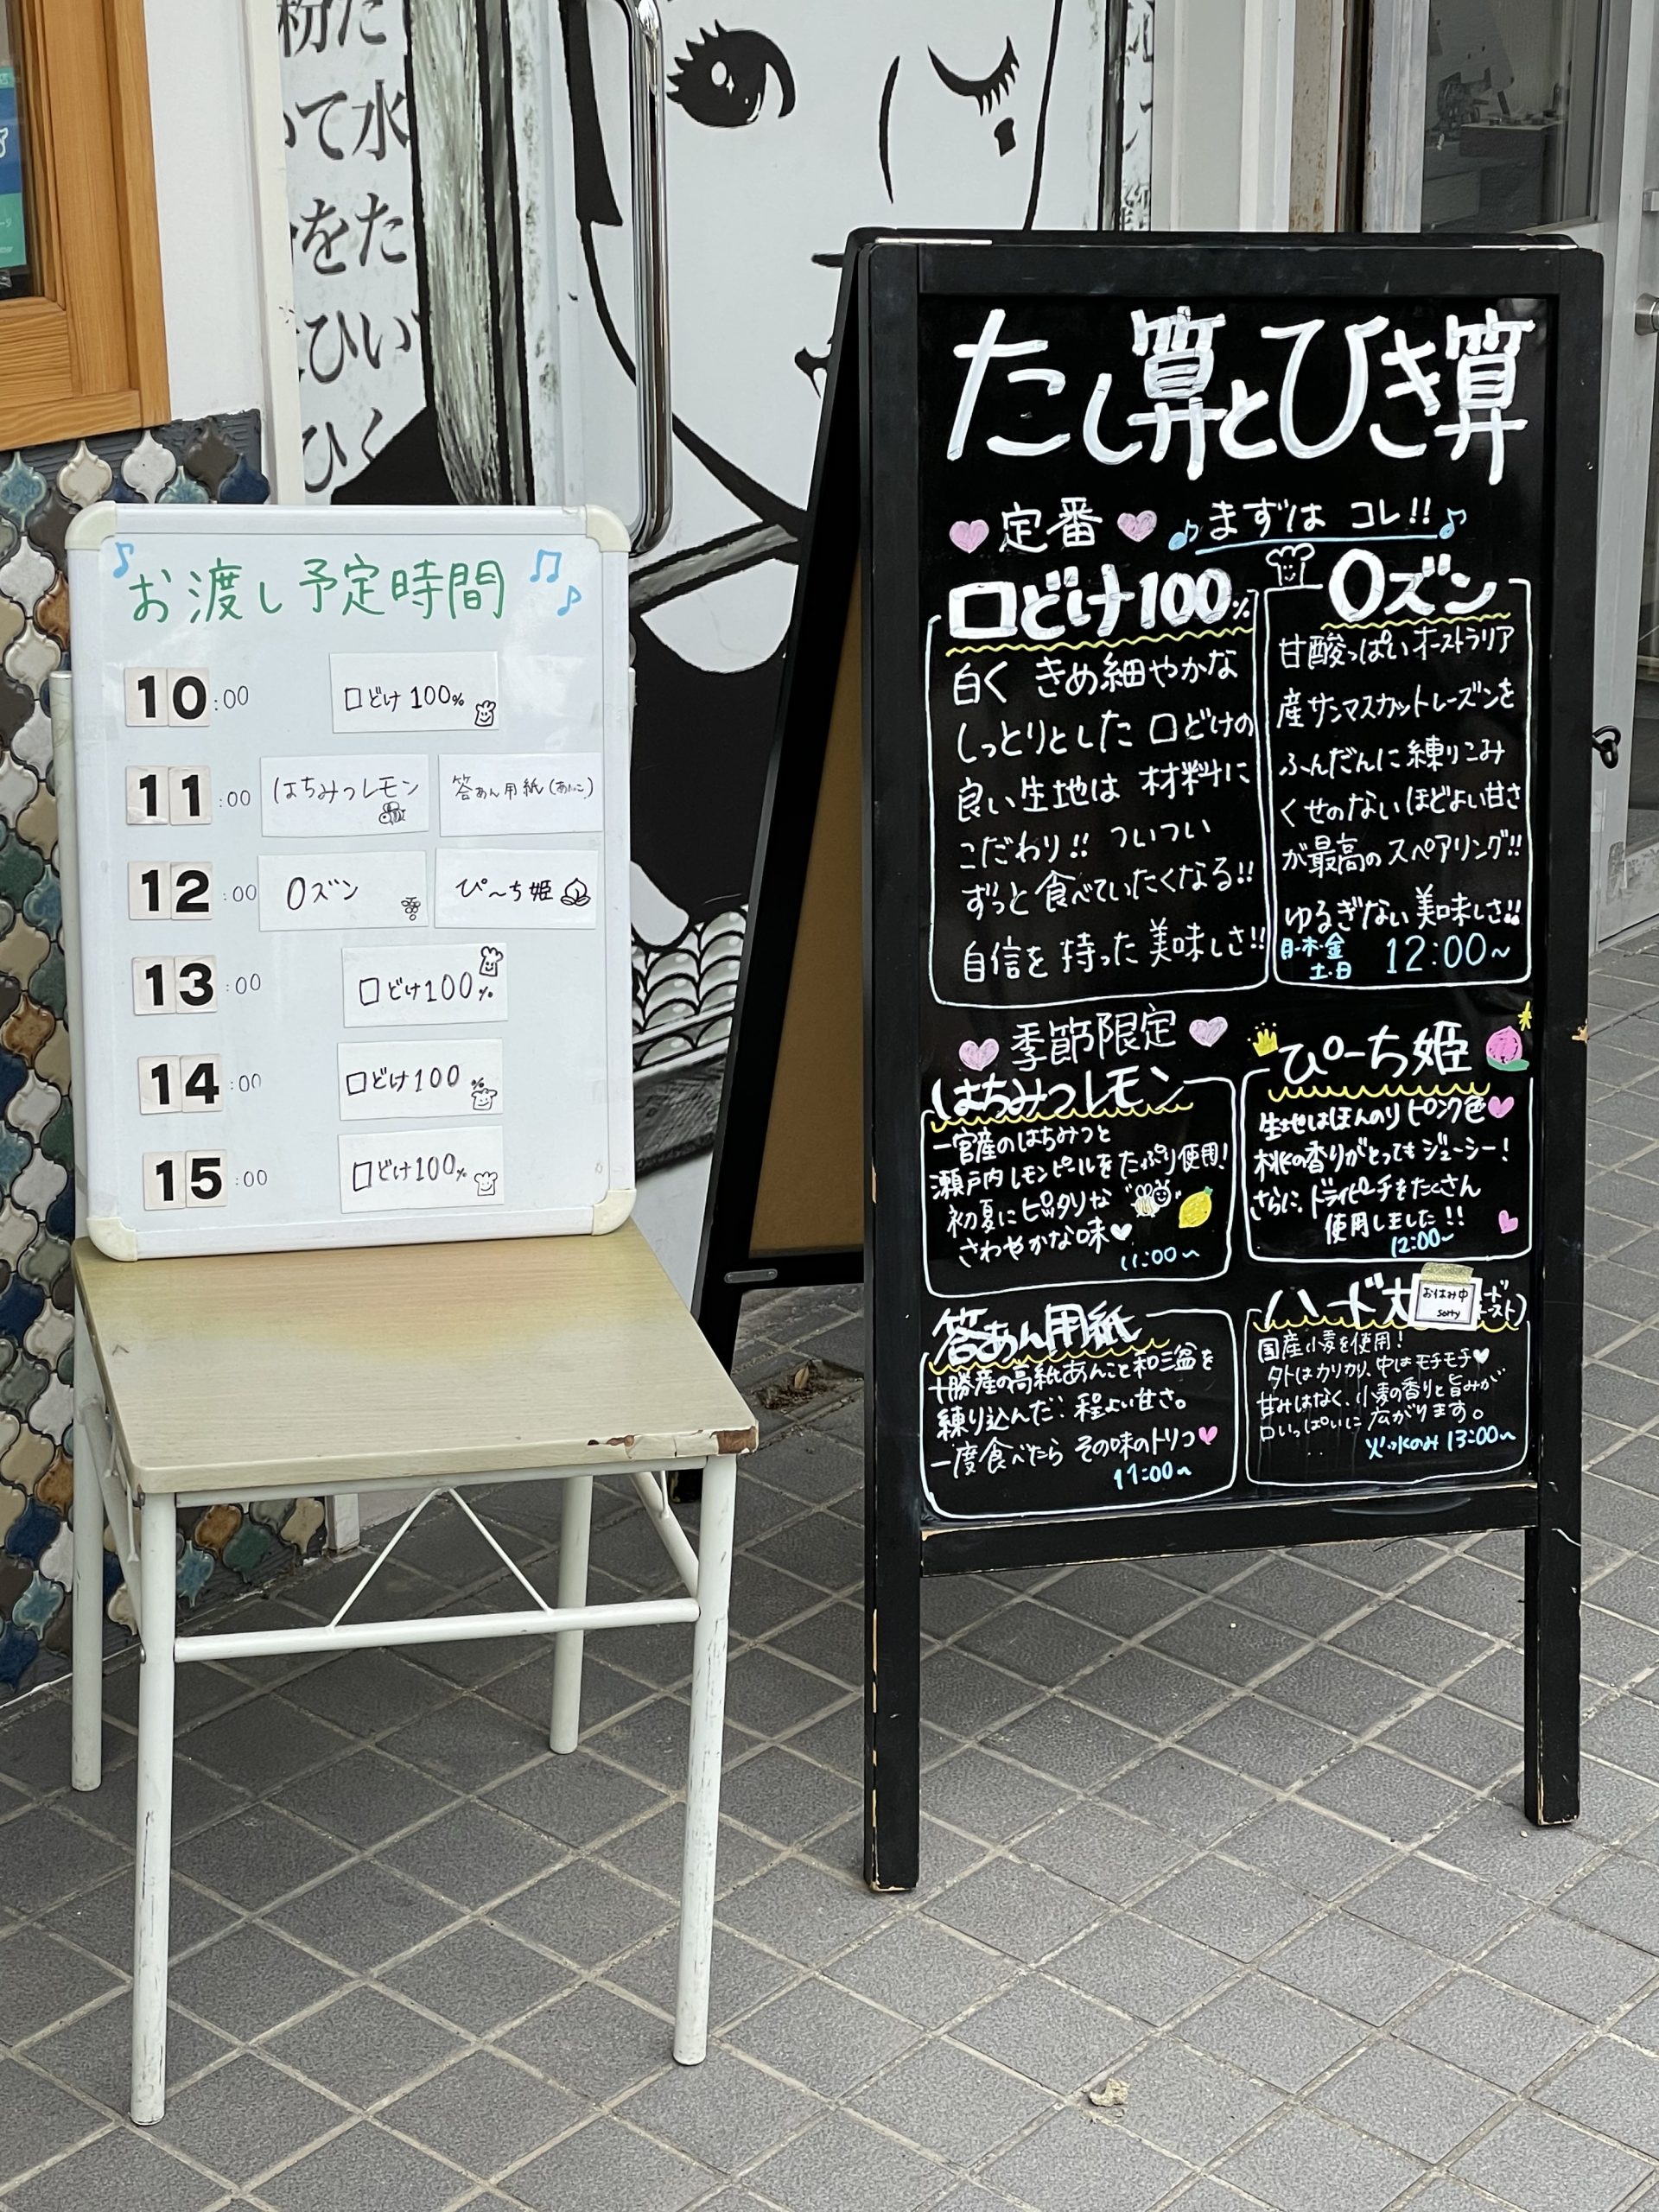 粉た
いて水
をた
ひい
ひく
お渡し予定時間
10:00 口どけ100%
11:00 はちみつレモン 答あん用紙(あんこ)
12:00 0ズン ぴ〜ち姫
13:00 口どけ100%
14:00 口どけ100%
15:00 口どけ100%
たし算とひき算
定番 まずは コレ!!
口どけ100%
白く きめ細やかな
しっとりとした 口どけの
良い生地は 材料に
こだわり!! ついつい
ずっと食べていたくなる!!
自信を 持った 美味しさ!!
0ズン
甘酸っぱいオーストラリア
産サンマスカットレーズンを
ふんだんに練りこみ
くせのないほどよい甘さ
が最高のスペアリング!!
ゆるぎない美味しさ!!
月・木・金
土・日 12:00~
季節限定
はちみつレモン
一宮産のはちみつと
瀬戸内レモンピールをたっぷり使用!
初夏にピッタリな
さわやかな味
11:00~
ぴーち姫
生地はほんのりピンク色
桃の香りがとってもジューシー!
さらに、ドライピーチをたくさん
使用しました!!
12:00~
答あん用紙
十勝産の高紙あんこと和三盆を
練り込んだ 程よい甘さ。
一度食べたら その味のトリコ
11:00~
ハード
お休み中
sorry
国産小麦を使用!
外はカリカリ、中はモチモチ
甘みはなく、小麦の香りと旨みが
口いっぱいに広がります。
火・水のみ 13:00~